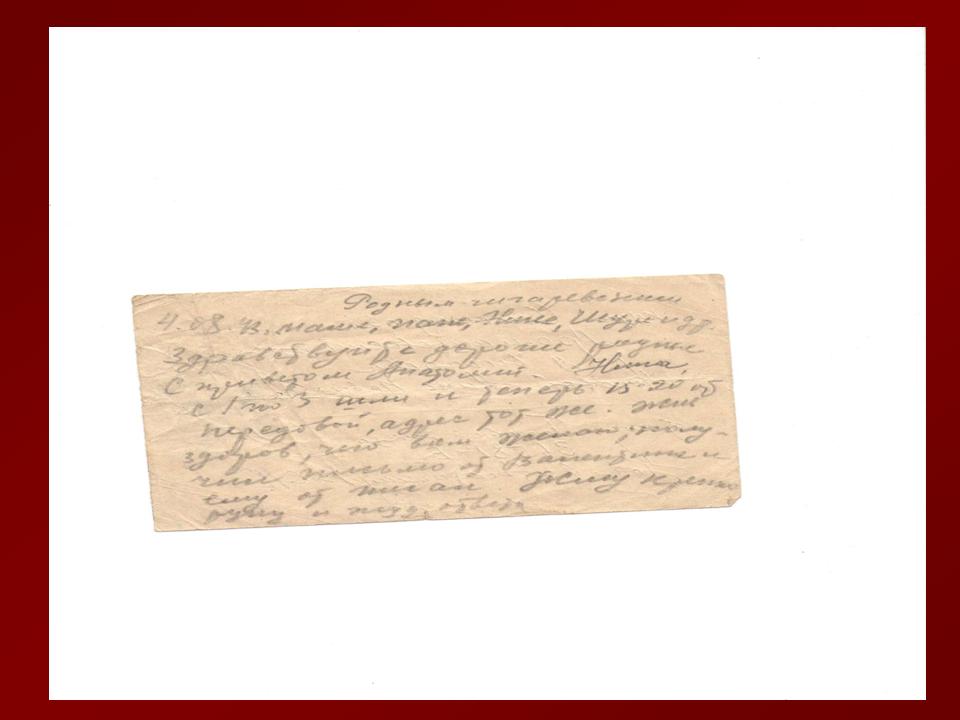 Родным
4.08.43. маме, папе, Нине, Шуре и др.
Здравствуйте дорогие родные
С приветом Анатолий. Нина,
с 1 по 3 шли и теперь 15-20 от
передовой, адрес тот же. Жив
здоров, чего вам желаю, полу-
чил письмо от Валентина и
ему от писал. Жму крепко
руку и жду ответа